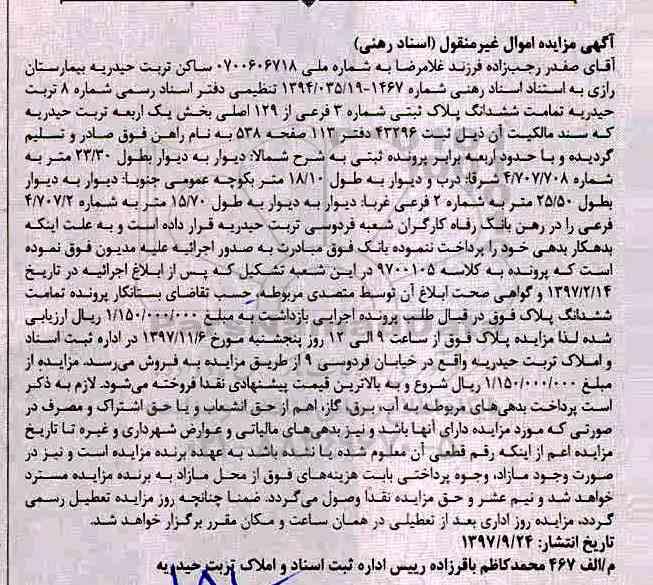 آگهی مزایده اموال غیرمنقول (اسناد رهنی)
آقای صفدر رجب‌زاده فرزند غلامرضا به شماره ملی ۰۷۰۰۶۰۶۷۱۸ ساکن تربت حیدریه بیمارستان
رازی به استناد اسناد رهنی شماره ۱۴۶۷-۱۳۹۴/۰۳۵/۱۹ تنظیمی دفتر اسناد رسمی شماره ۸ تربت
حیدریه تمامت ششدانگ پلاک ثبتی شماره ۳ فرعی از ۱۲۹ اصلی بخش یک اربعه تربت حیدریه
که سند مالکیت آن ذیل ثبت ۴۳۲۹۶ دفتر ۱۱۳ صفحه ۵۳۸ به نام راهن فوق صادر و تسلیم
گردیده و با حدود اربعه برابر پرونده ثبتی به شرح شمالا: دیوار به دیوار بطول ۲۳/۳۰ متر به
شماره ۴/۷۰۷/۷۰۸ شرقا: درب و دیوار به طول ۱۸/۱۰ متر بکوچه عمومی جنوبا: دیوار به دیوار
بطول ۲۵/۵۰ متر به شماره ۲ فرعی غربا: دیوار به دیوار به طول ۱۵/۷۰ متر به شماره ۴/۷۰۷/۲
فرعی را در رهن بانک رفاه کارگران شعبه فردوسی تربت حیدریه قرار داده است و به علت اینکه
بدهکار بدهی خود را پرداخت ننموده بانک فوق مبادرت به صدور اجرائیه علیه مدیون فوق نموده
است که پرونده به کلاسه ۹۷۰۰۱۰۵ در این شعبه تشکیل که پس از ابلاغ اجرائیه در تاریخ
۱۳۹۷/۲/۱۴ و گواهی صحت ابلاغ آن توسط متصدی مربوطه، حسب تقاضای بستانکار پرونده تمامت
ششدانگ پلاک فوق در قبال طلب پرونده اجرایی بازداشت به مبلغ ۱/۱۵۰/۰۰۰/۰۰۰ ریال ارزیابی
شده لذا مزایده پلاک فوق از ساعت ۹ الی ۱۲ روز پنجشنبه مورخ ۱۳۹۷/۱۱/۶ در اداره ثبت اسناد
و املاک تربت حیدریه واقع در خیابان فردوسی ۹ از طریق مزایده به فروش می‌رسد. مزایده از
مبلغ ۱/۱۵۰/۰۰۰/۰۰۰ ریال شروع و به بالاترین قیمت پیشنهادی نقدا فروخته می‌شود. لازم به ذکر
است پرداخت بدهی‌های مربوطه به آب، برق، گاز، اهم از حق انشعاب و یا حق اشتراک و مصرف در
صورتی که مورد مزایده دارای آنها باشد و نیز بدهی‌های مالیاتی و عوارض شهرداری و غیره تا تاریخ
مزایده اعم از اینکه رقم قطعی آن معلوم شده یا نشده باشد به عهده برنده مزایده است و نیز در
صورت وجود مازاد، وجوه پرداختی بابت هزینه‌های فوق از محل مازاد به برنده مزایده مسترد
خواهد شد و نیم عشر و حق مزایده نقدا وصول می‌گردد. ضمنا چنانچه روز مزایده تعطیل رسمی
گردد، مزایده روز اداری بعد از تعطیلی در همان ساعت و مکان مقرر برگزار خواهد شد.
تاریخ انتشار: ۱۳۹۷/۹/۲۴
م/الف ۴۶۷ محمدکاظم باقرزاده رییس اداره ثبت اسناد و املاک تربت حیدریه